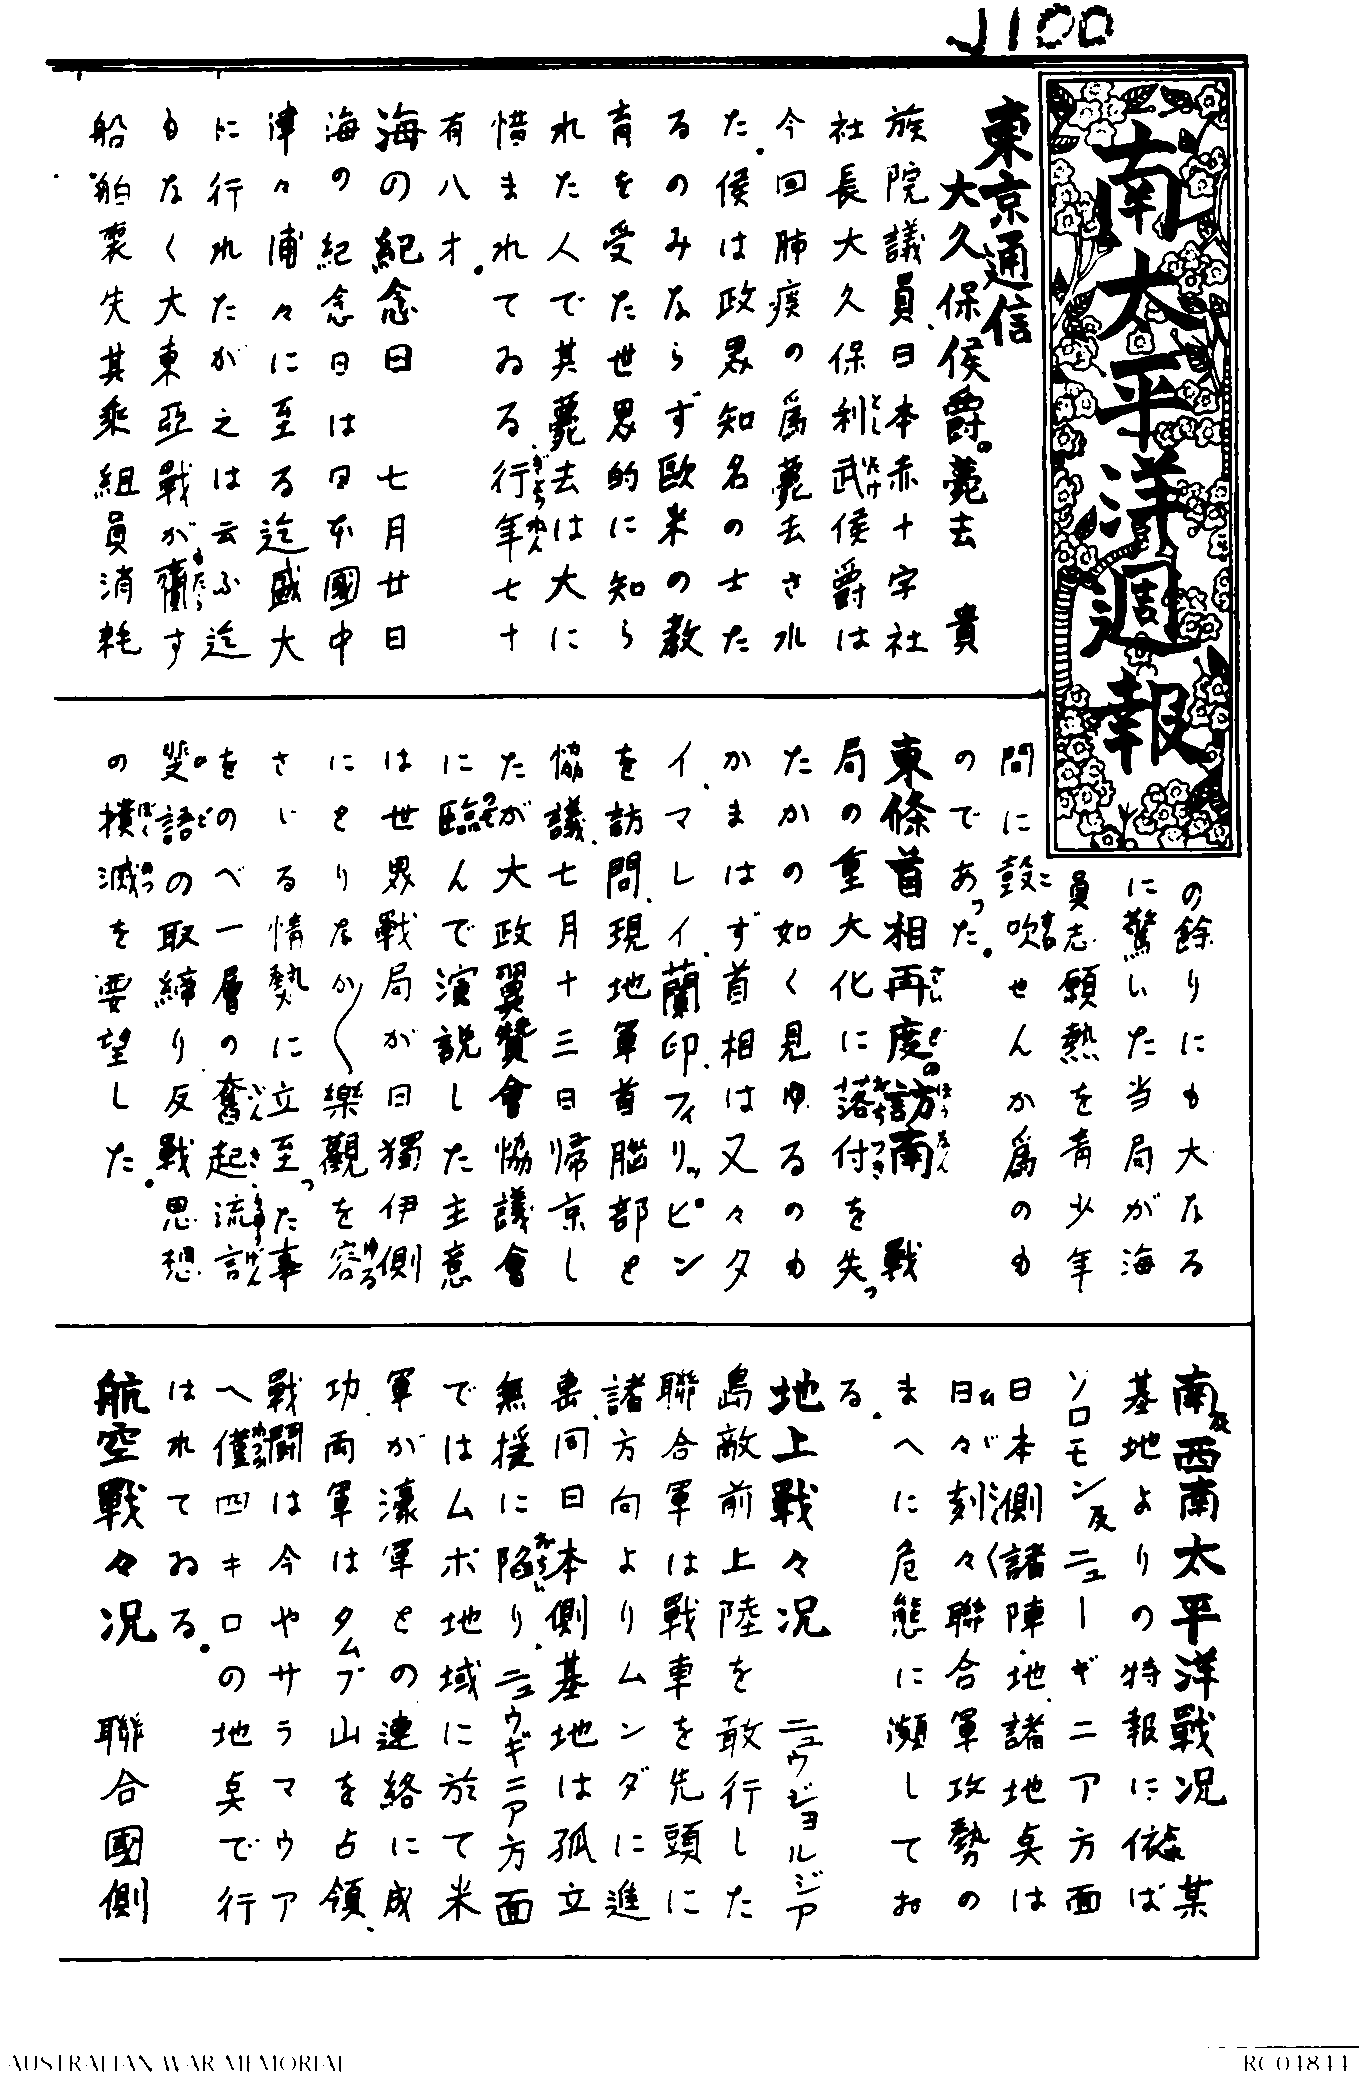 J100
南太平洋週報
東京通信
大久保侯爵の薨去 貴
族院議員、日本赤十字社
社長大久保利武侯爵は
今回肺疾の為薨去され
た。侯は政界知名の士た
るのみならず歐米の教
育を受た世界的に知ら
れた人で其薨去は大に
惜まれてゐる、行年七十
有八才。
海の紀念日 七月廿日
海の紀念日は日本國中
津々浦々に至る迄盛大
に行れたが之は云ふ迄
もなく大東亞戰が齎す
船舶喪失其乘組員消耗
の餘りにも大なる
に驚いた当局が海
員志願熱を青少年
間に鼓吹せんか為のも
のであった。
東條首相再度の訪南 戰
局の重大化に落付を失っ
たかの如く見ゆるのも
かまはず首相は又々タ
イ、マレイ、蘭印、フィリッピン
を訪問、現地軍首脳部と
協議、七月十三日帰京し
たが大政翼賛會協議會
に臨んで演説した主意
は世界戰局が日獨伊側
にとりなか〱樂觀を容
さゞる情勢に立至った事
をのべ一層の奮起、流言
蜚語の取締り反戰思想
の撲滅を要望した。
南及西南太平洋戰況 某
基地よりの特報に依ば
ソロモン及ニューギニア方面
日本側諸陣地、諸地点は
日々刻々聯合軍攻勢の
まへに危態に瀕してお
る。
地上戰々況 ニュウジョルジア
島敵前上陸を敢行した
聯合軍は戰車を先頭に
諸方向よりムンダに進
出、同日本側基地は孤立
無援に陥り、ニュウギニア方面
ではムボ地域に於て米
軍が濠軍との連絡に成
功、両軍はタムブ山を占領、
戰闘は今やサラマウア
へ僅四キロの地点で行
はれてゐる。
航空戰々況 聯合國側
AUSTRALIAN WAR MEMORIAL
RC04844